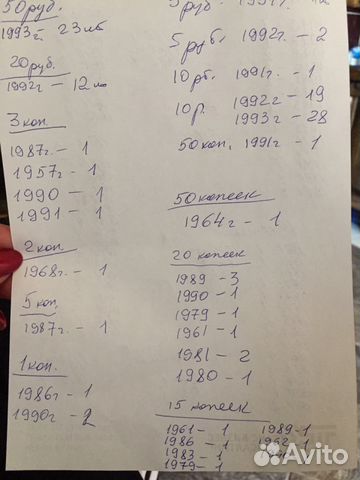 50 руб.
1993г. 23 шт
20 руб.
1992г - 12 шт
3 коп.
1987г. - 1
1957г. - 1
1990 - 1
1991 - 1
2 коп.
1968г. - 1
5 коп.
1987г. - 1
1 коп.
1986г - 1
1990г - 2
5 руб. 1992г. - 2
10 рб. 1991г. - 1
10 р. 1992г - 19
1993г - 28
50 коп. 1991г - 1
50 копеек
1964г - 1
20 копеек
1989 - 3
1990 - 1
1979 - 1
1961 - 1
1981 - 2
1980 - 1
15 копеек
1961 - 1 1989 - 1
1986 - 1 1962 - 1
1983 - 1
1979 - 1
Avito